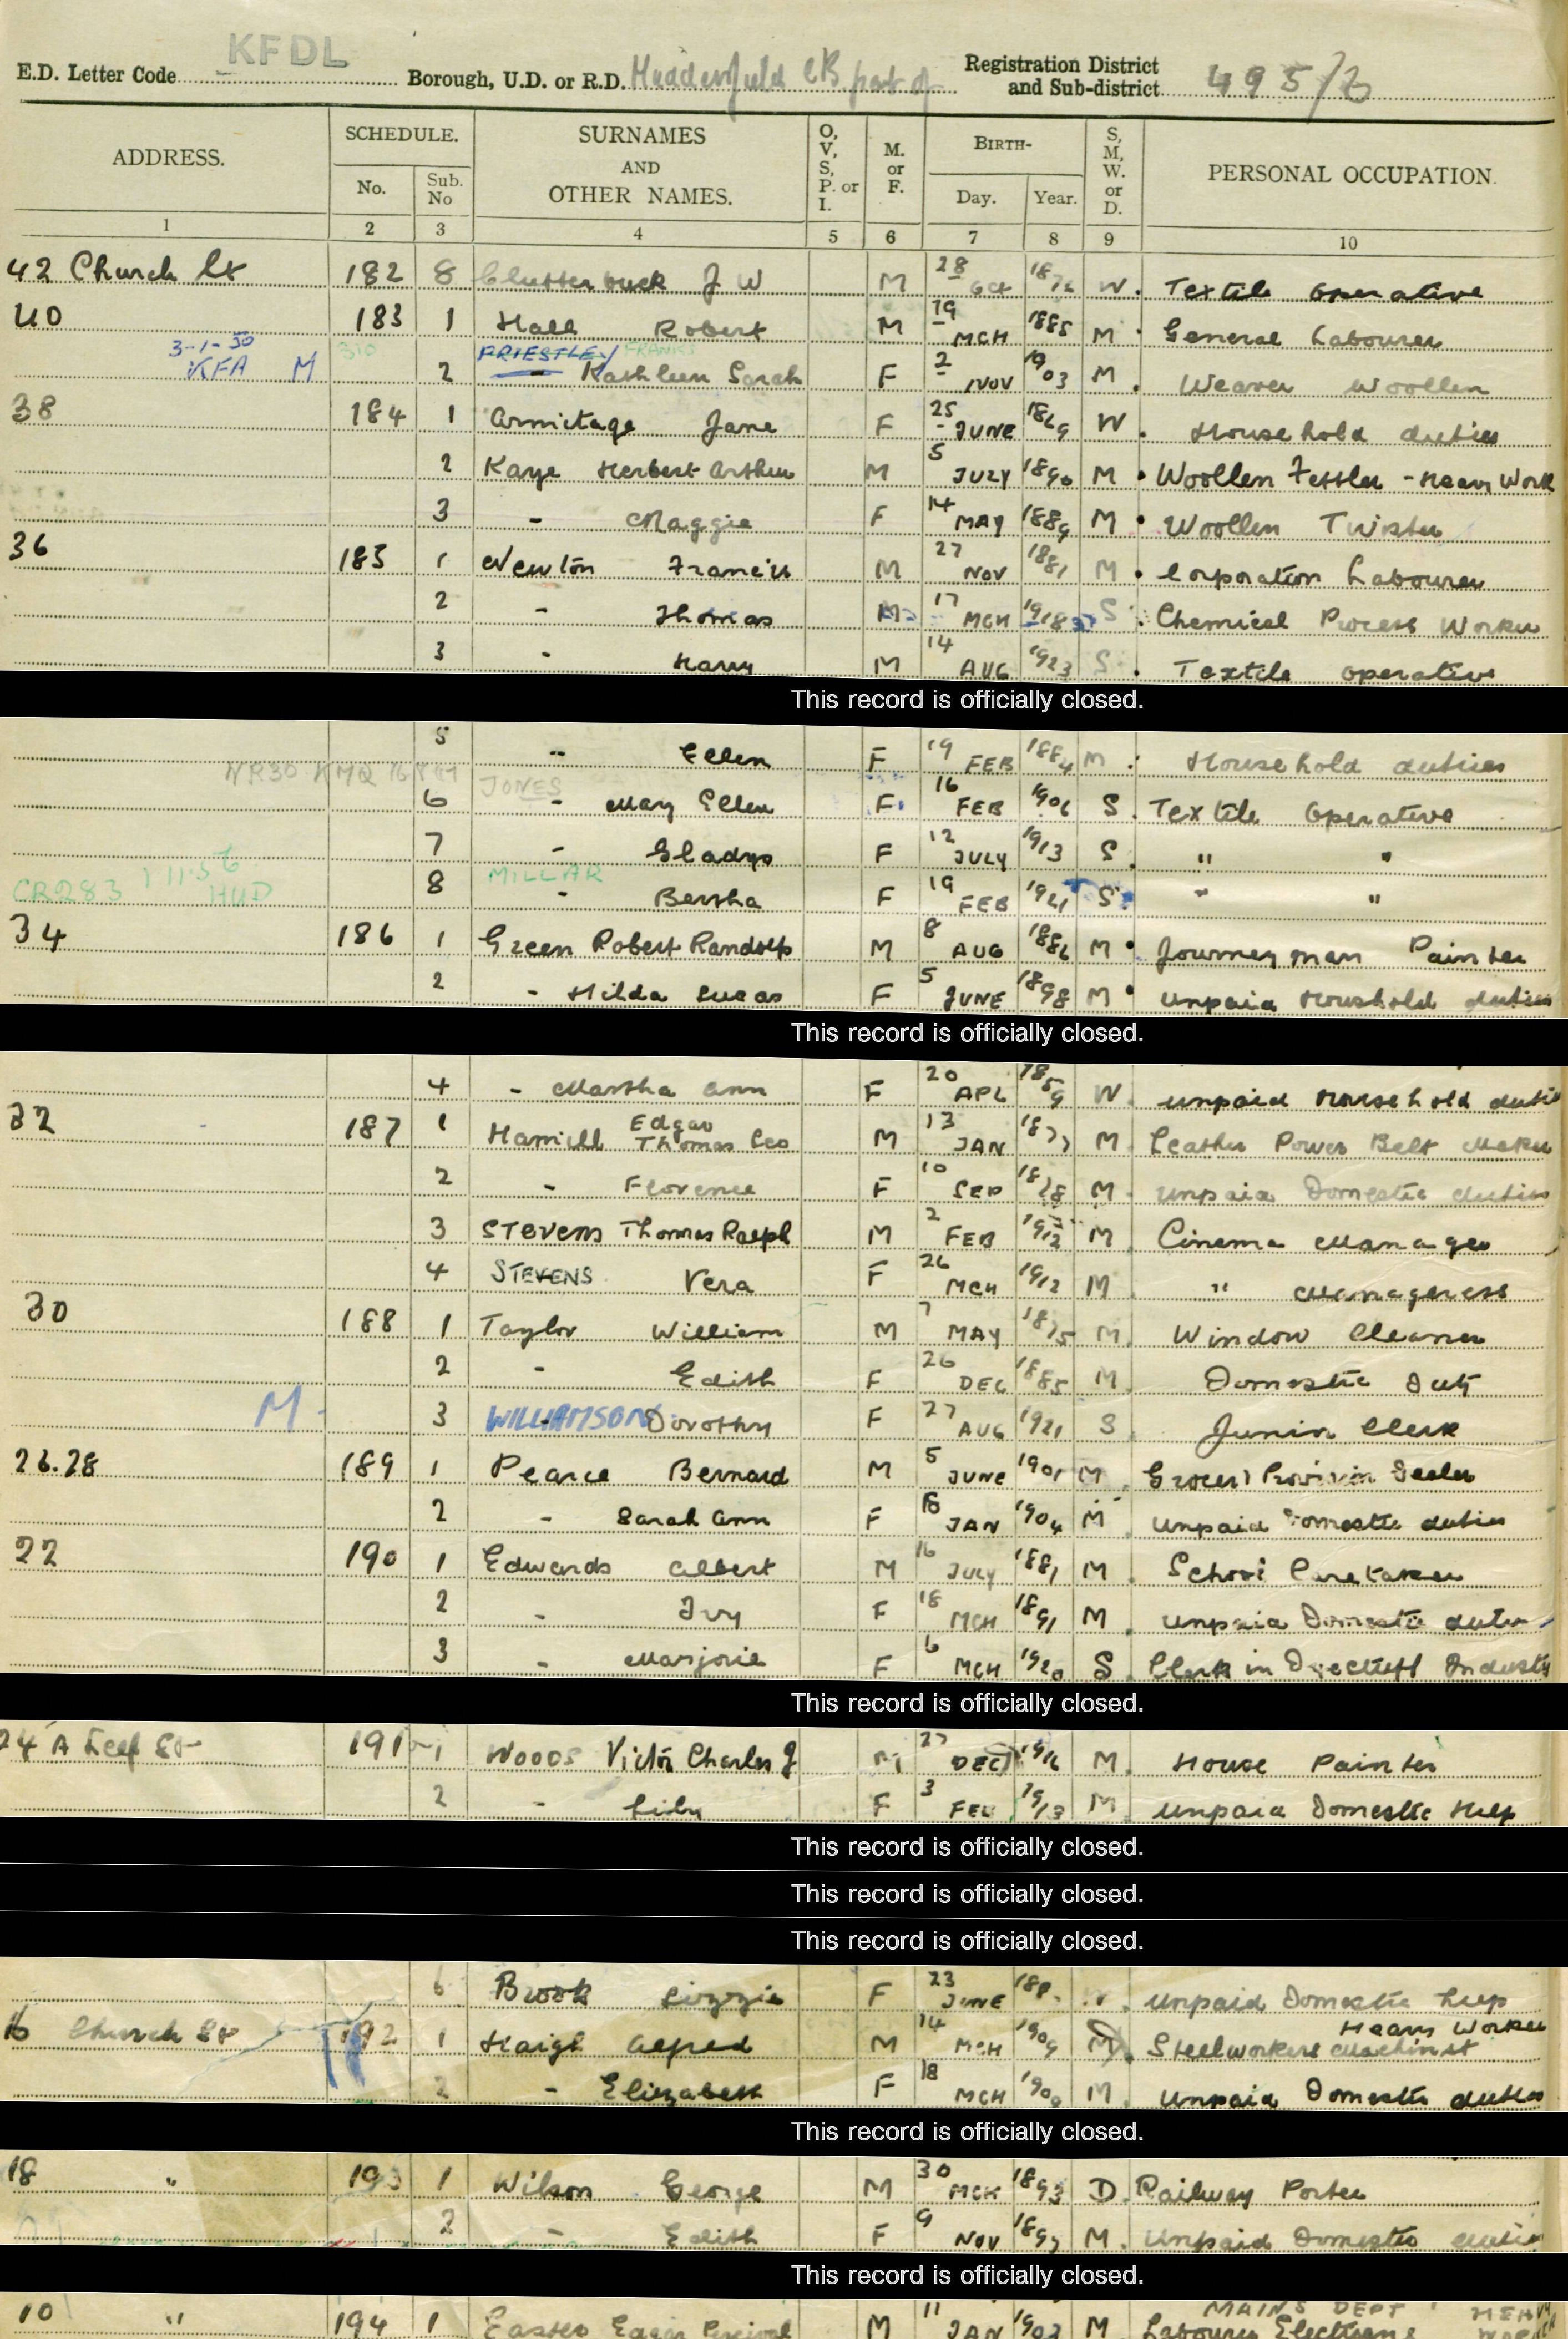 E.D. Letter Code KFDL Borough, U.D. or R.D. Huddersfield CB part of Registration District and Sub-district 495/3
ADDRESS. SCHEDULE. No. Sub. No SURNAMES AND OTHER NAMES. O, V, S, P. or I. M. or F. BIRTH- Day. Year. S, M, W. or D. PERSONAL OCCUPATION.
1 2 3 4 5 6 7 8 9 10
42 Church St 182 8 Clutterbuck J W M 28 Oct 1876 W. Textile operative
40 183 1 Hall Robert M 19 MCH 1885 M General Labourer
3-1-50 310 PRIESTLEY/ FRANKS
KFA M 2 - Kathleen Sarah F 2 NOV 1903 M. Weaver Woollen
38 184 1 Armitage Jane F 25 JUNE 1869 W. Household duties
2 Kaye Herbert Arthur M 5 JULY 1890 M Woollen Fettler - Heavy Work
3 - Maggie F 14 MAY 1889 M Woollen Twister
36 185 1 Newton Francis M 27 NOV 1881 M Corporation Labourer
2 - Thomas M 17 MCH 1918 S Chemical Process Worker
3 - Harry M 14 AUG 1923 S Textile operative
This record is officially closed.
5 - Ellen F 19 FEB 1884 M Household duties
NR30 KMQ JONES
6 - Mary Ellen F. 16 FEB 1906 S. Textile operative
7 - Gladys F 12 JULY 1913 S. " "
CR283 1 11.56 HUD MILLAR
8 - Bertha F 19 FEB 1921 S " "
34 186 1 Green Robert Randolph M 8 AUG 1886 M Journeyman Painter
2 - Hilda Lucas F 5 JUNE 1898 M unpaid Household duties
This record is officially closed.
4 - Martha Ann F 20 APL 1859 W. unpaid household duties
32 187 1 Hamill Edgar Thomas Leo M 13 JAN 1877 M. Leather Power Belt Maker
2 - Florence F 10 SEP 1878 M unpaid Domestic duties
3 STEVENS Thomas Ralph M 2 FEB 1912 M Cinema Manager
4 STEVENS Vera F 26 MCH 1912 M " Manageress
30 188 1 Taylor William M 7 MAY 1875 M. Window Cleaner
2 - Edith F 26 DEC 1885 M. Domestic Duty
M. 3 WILLIAMSON - Dorothy F 27 AUG 1921 S Junior Clerk
26.28 189 1 Pearce Bernard M 5 JUNE 1901 M. Grocery Provision Dealer
2 - Sarah Ann F 18 JAN 1904 M unpaid Domestic duties
22 190 1 Edwards Albert M 16 JULY 1881 M. School Caretaker
2 - Ivy F 18 MCH 1891 M. unpaid Domestic duties
3 - Marjorie F 6 MCH 1920 S. Clerk in Dyestuff Industry
This record is officially closed.
24 A Leef St 191 1 WOODS Victor Charles J M 27 DEC 1916 M. House Painter
2 - Lily F 3 FEB 1913 M. unpaid Domestic Help
This record is officially closed.
This record is officially closed.
This record is officially closed.
6 Brook Lizzie F 23 JUNE unpaid Domestic help
Heavy Worker
16 Church St 192 1 Haigh Alfred M 14 MCH 1909 M. Steelworkers Machinist
2 - Elizabeth F 18 MCH M. unpaid Domestic duties
This record is officially closed.
18 " 193 1 Wilson George M 30 MCH 1893 D. Railway Porter
2 - Edith F 9 NOV 1897 M. Unpaid Domestic duties
This record is officially closed.
MAINS DEPT HEAVY
10 " 194 1 M 11 JAN 1902 M Labourer